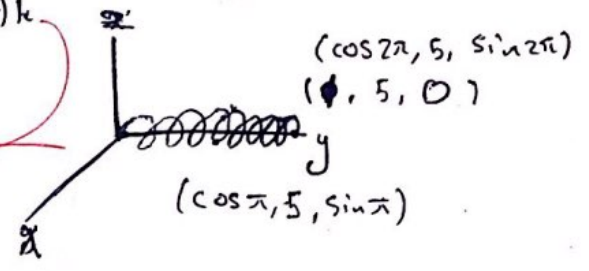 )k
z
(cos2π, 5, sin2π)
( , 5, 0 )
y
(cosπ, 5, sinπ)
x